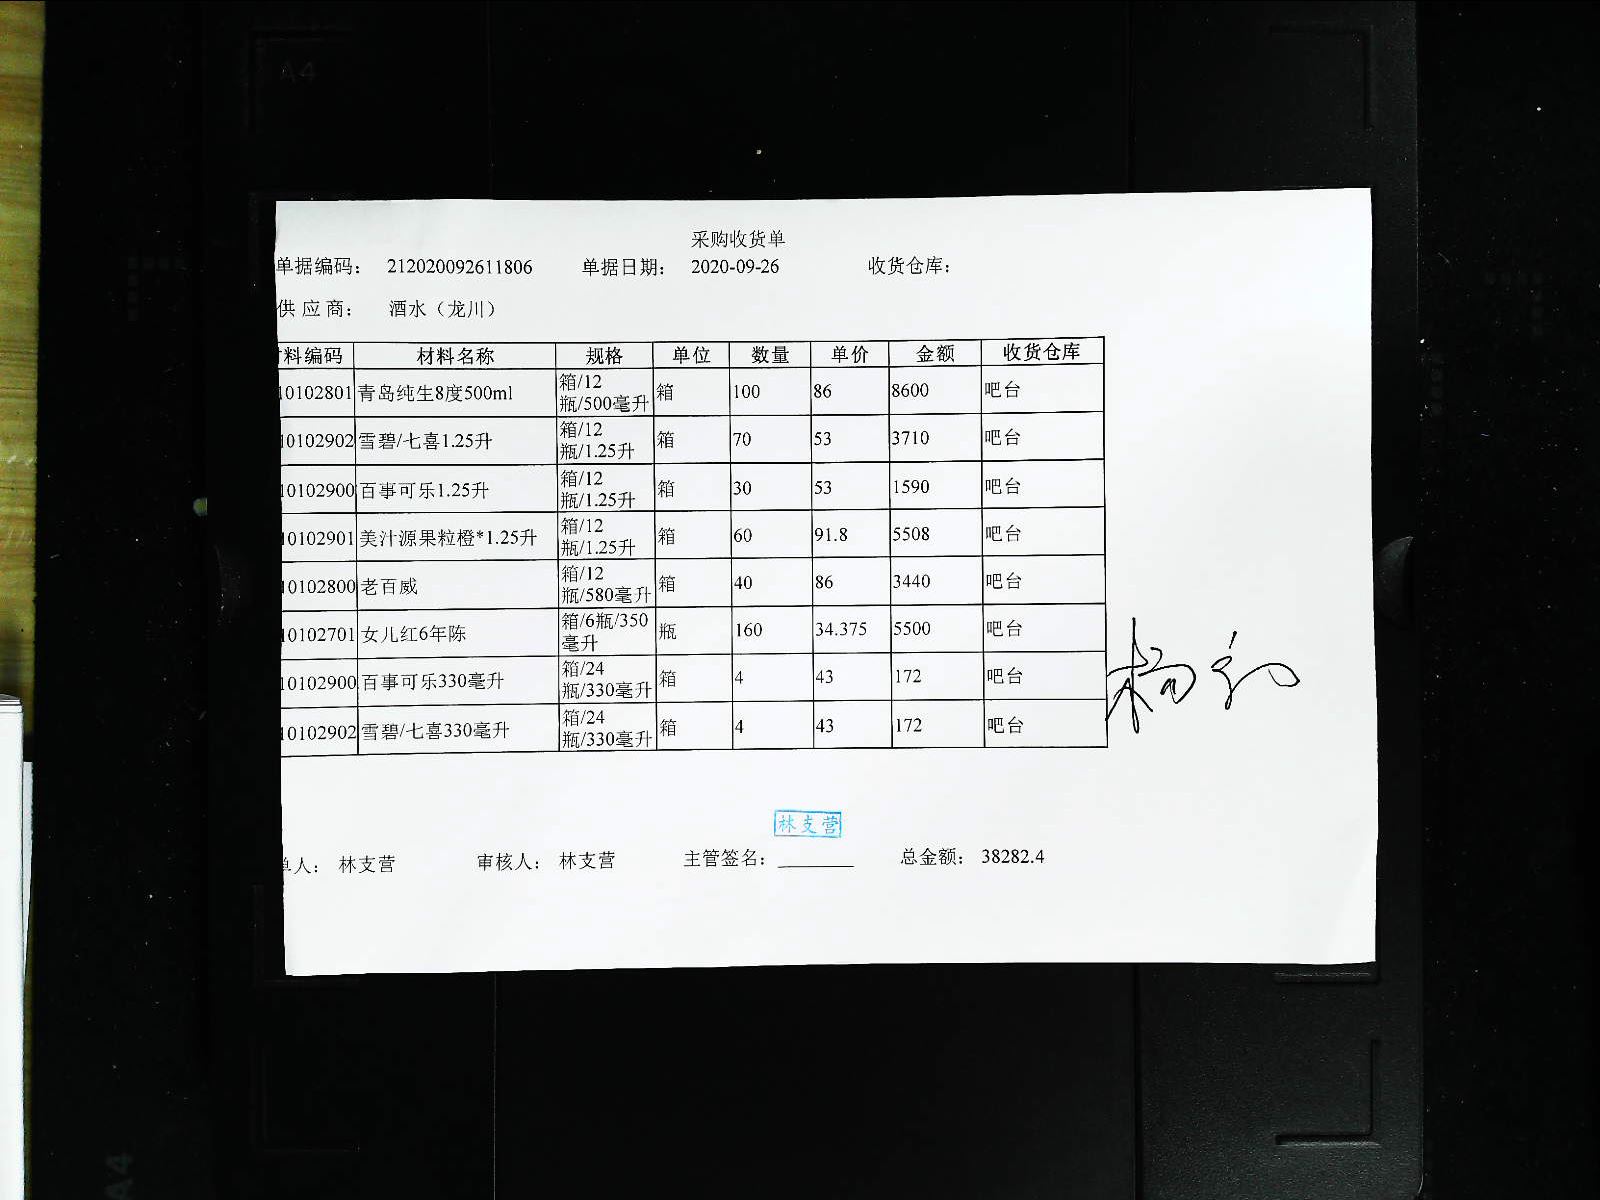 采购收货单
单据编码： 212020092611806 单据日期： 2020-09-26 收货仓库：
供应商： 酒水（龙川）
材料编码 材料名称 规格 单位 数量 单价 金额 收货仓库
10102801 青岛纯生8度500ml 箱/12瓶/500毫升 箱 100 86 8600 吧台
10102902 雪碧/七喜1.25升 箱/12瓶/1.25升 箱 70 53 3710 吧台
10102900 百事可乐1.25升 箱/12瓶/1.25升 箱 30 53 1590 吧台
10102901 美汁源果粒橙*1.25升 箱/12瓶/1.25升 箱 60 91.8 5508 吧台
10102800 老百威 箱/12瓶/580毫升 箱 40 86 3440 吧台
10102701 女儿红6年陈 箱/6瓶/350毫升 瓶 160 34.375 5500 吧台
10102900 百事可乐330毫升 箱/24瓶/330毫升 箱 4 43 172 吧台
10102902 雪碧/七喜330毫升 箱/24瓶/330毫升 箱 4 43 172 吧台
林支营
单人： 林支营 审核人： 林支营 主管签名： 总金额： 38282.4
A4
A4